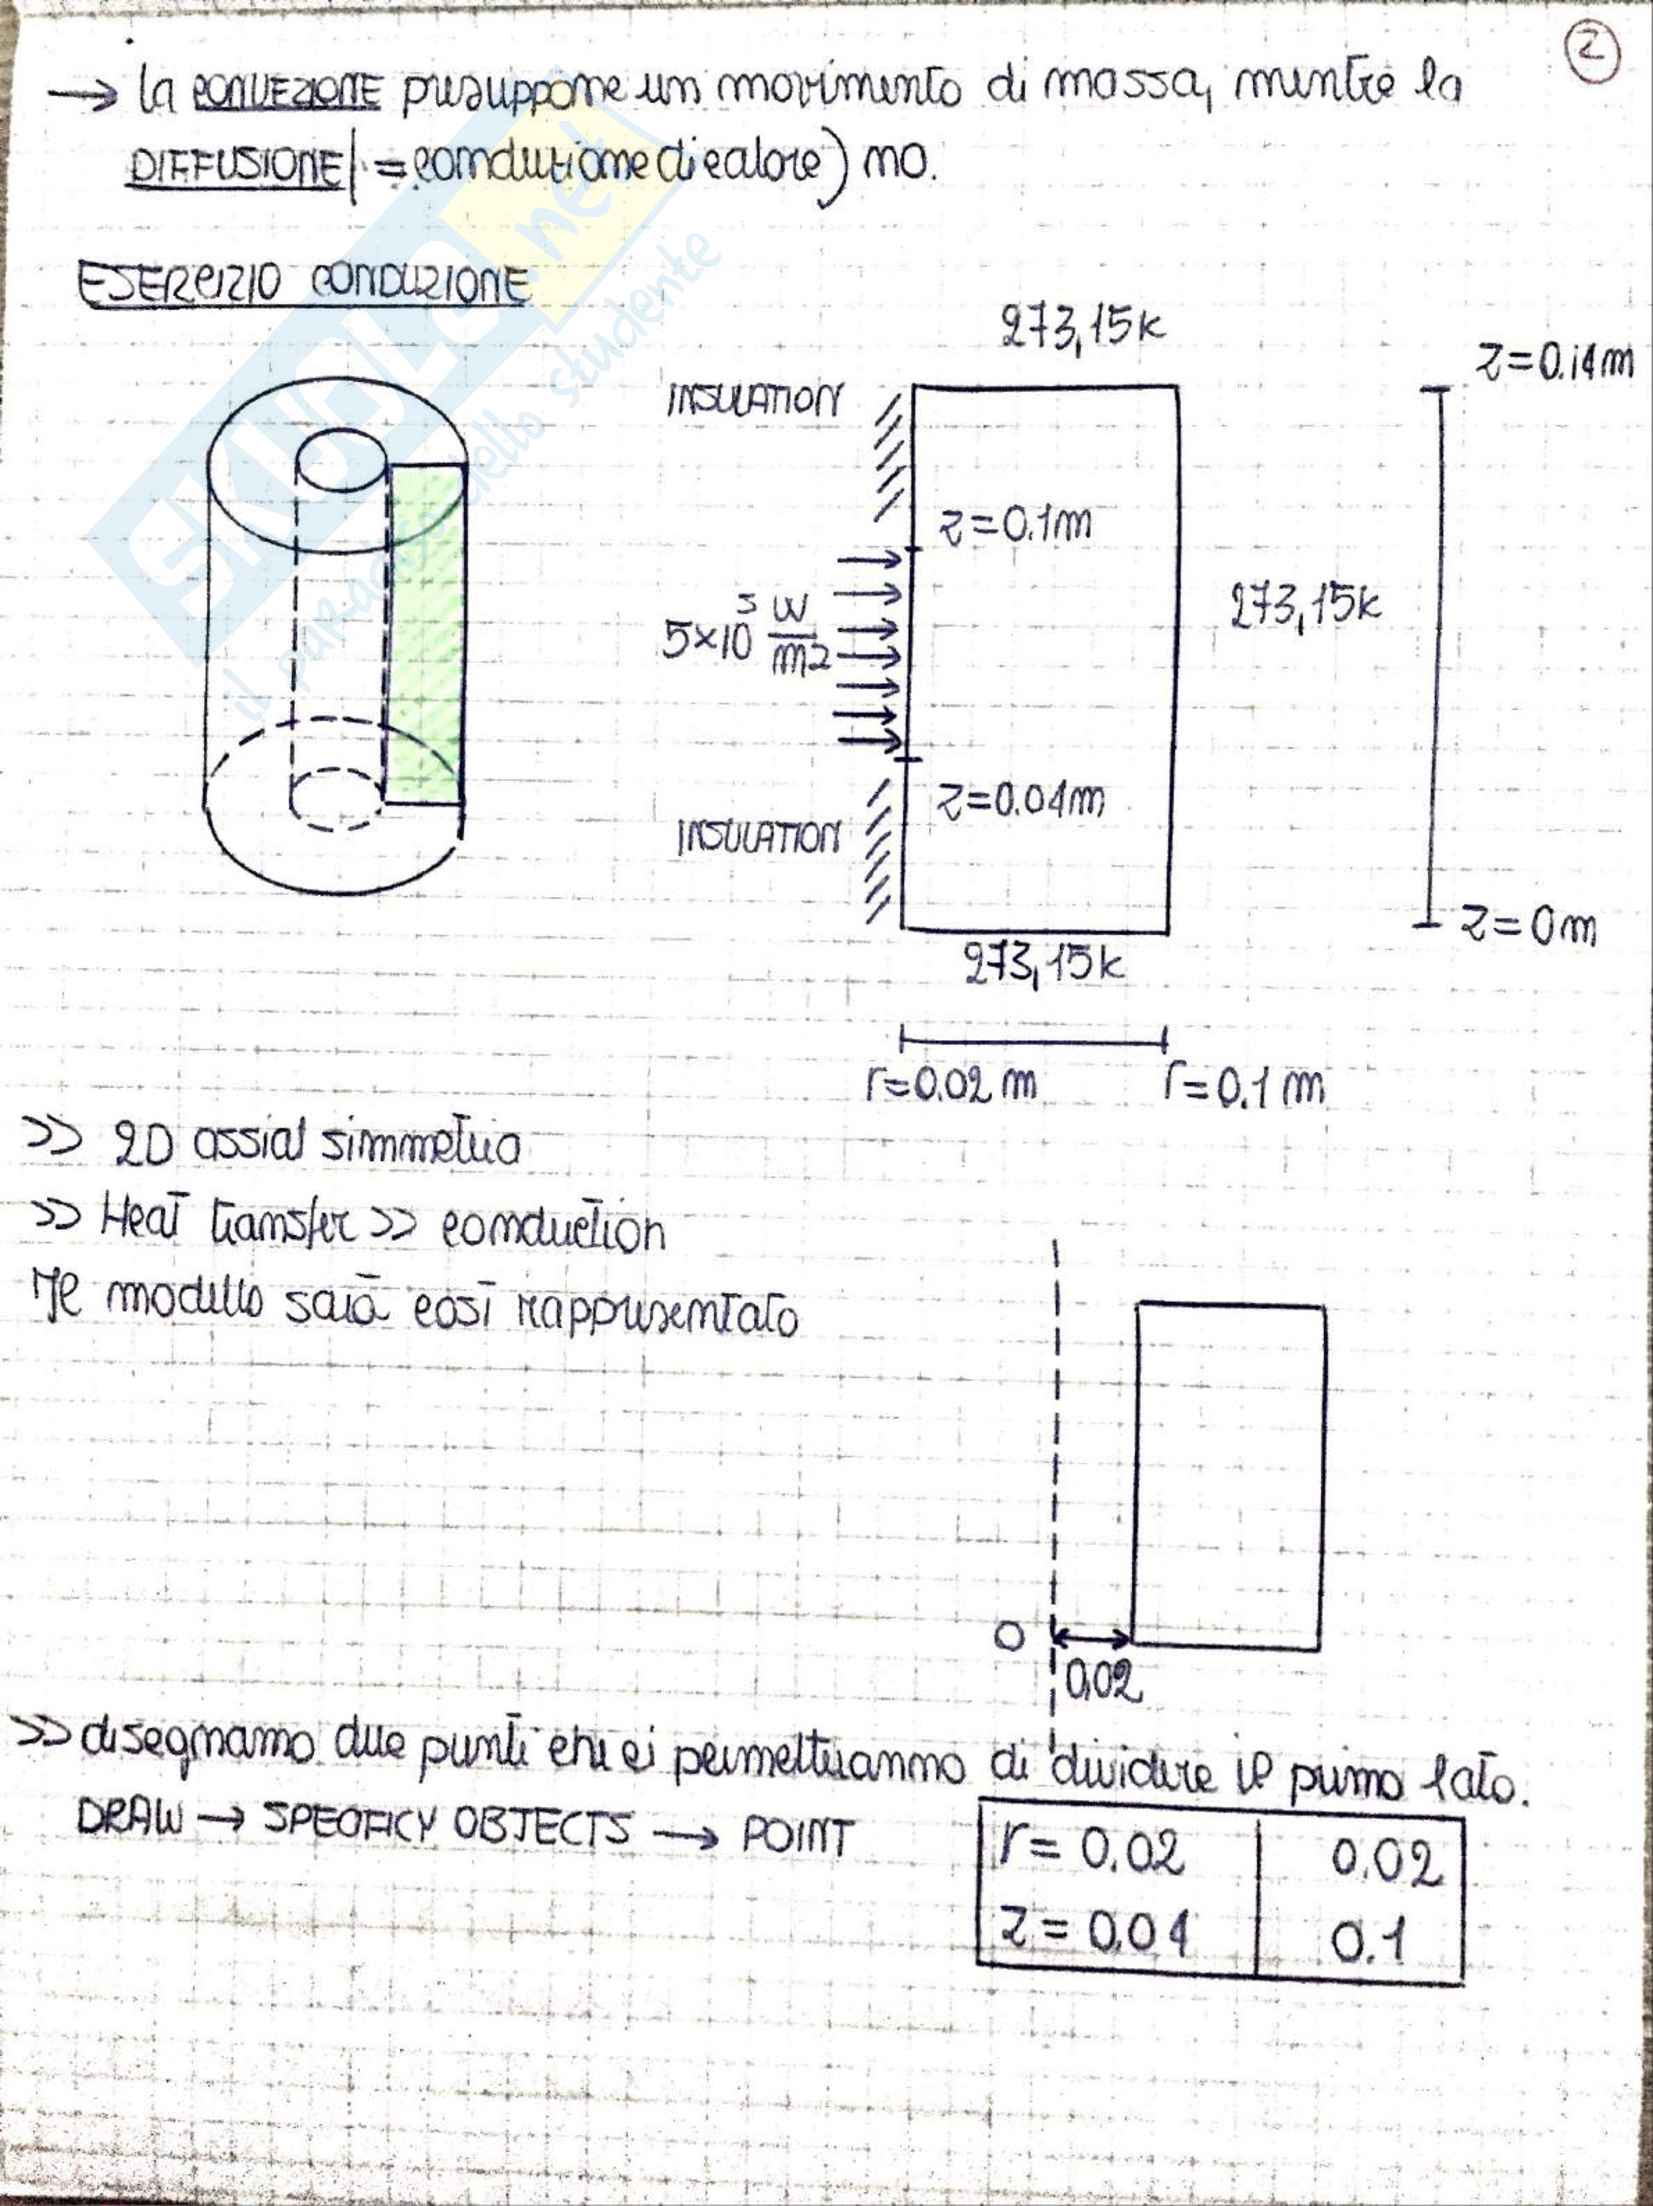 2
→ la CONVEZIONE presuppone un movimento di massa, mentre la
DIFFUSIONE (= conduzione di calore) no.
ESERCIZIO CONDUZIONE
273,15K
z=0.14m
INSULATION
z=0.1m
5×10⁵ W/m2
273,15K
z=0.04m
INSULATION
z=0m
273,15K
r=0.02m
r=0.1m
>> 2D assial simmetria
>> Heat transfer >> conduction
Il modello sarà così rappresentato
O
0,02
>> disegnamo due punti che ci permetteranno di dividere il primo lato.
DRAW → SPEOFICY OBJECTS → POINT
r= 0.02 | 0.02
z= 0.04 | 0.1
SKUOLA.net
il paradiso dello studente